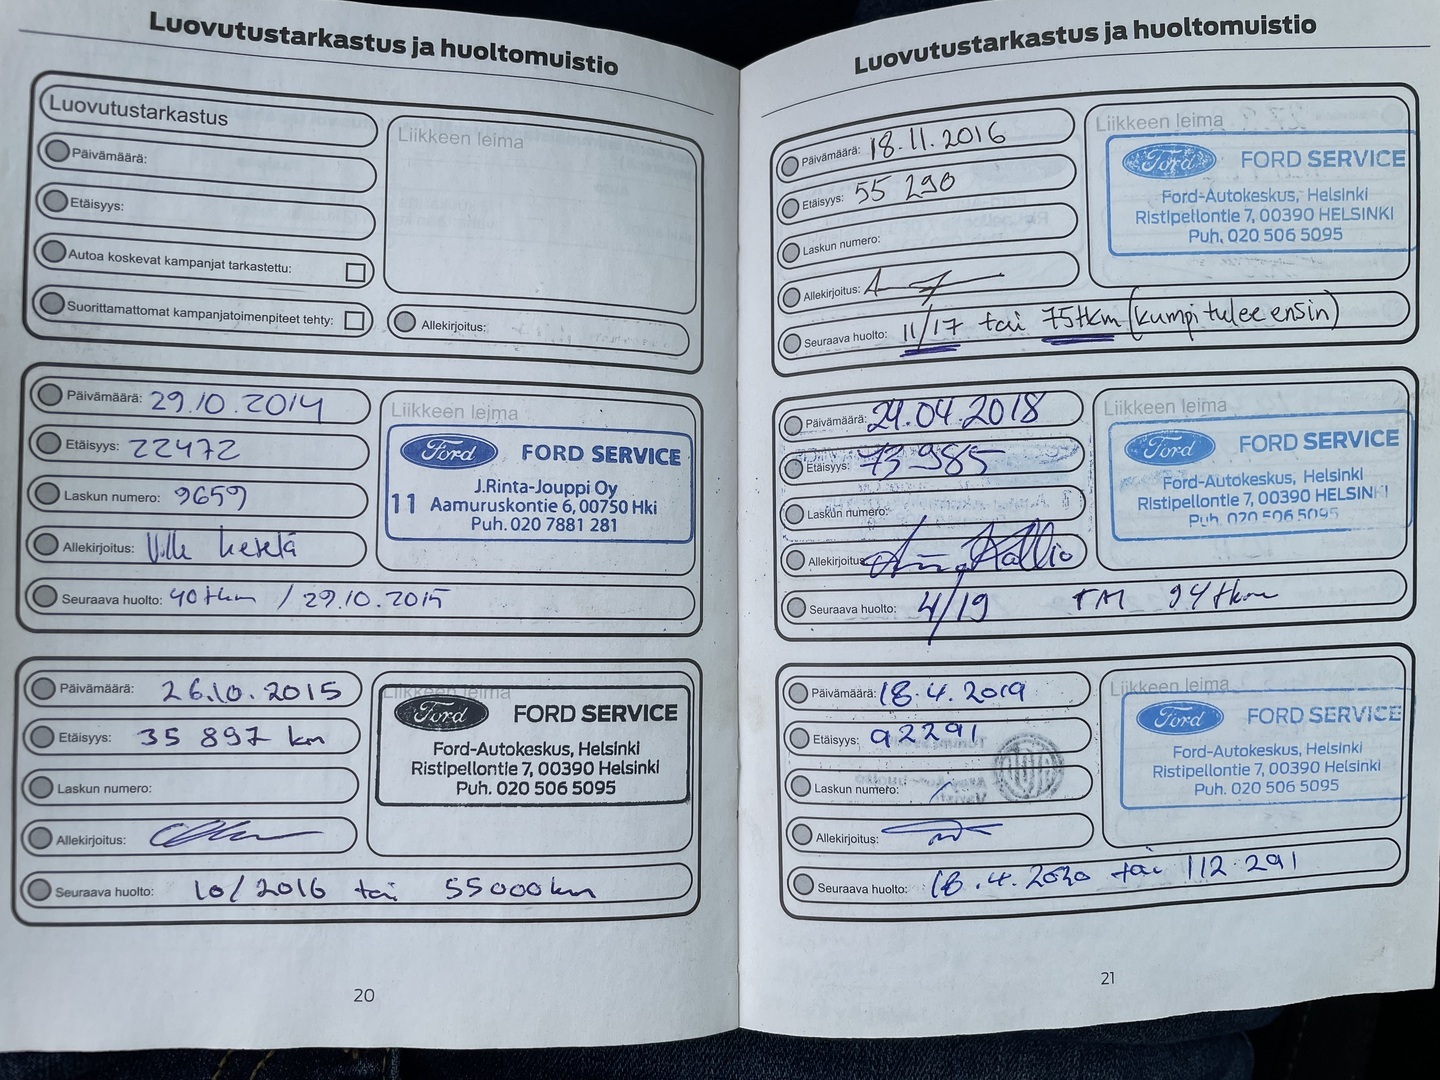 Luovutustarkastus ja huoltomuistio
Luovutustarkastus
Liikkeen leima
Päivämäärä:
Etäisyys:
Autoa koskevat kampanjat tarkastettu:
Suorittamattomat kampanjatoimenpiteet tehty:
Allekirjoitus:
Päivämäärä: 29.10.2014
Etäisyys: 22472
Laskun numero: 9659
Allekirjoitus: Ville
Seuraava huolto: 40tkm / 29.10.2015
Liikkeen leima
Ford FORD SERVICE
J.Rinta-Jouppi Oy
11 Aamuruskontie 6, 00750 Hki
Puh. 020 7881 281
Päivämäärä: 26.10.2015
Etäisyys: 35 897 km
Laskun numero:
Allekirjoitus:
Seuraava huolto: 10/2016 tai 55000km
Liikkeen leima
Ford FORD SERVICE
Ford-Autokeskus, Helsinki
Ristipellontie 7, 00390 Helsinki
Puh. 020 506 5095
20
Luovutustarkastus ja huoltomuistio
Päivämäärä: 18.11.2016
Etäisyys: 55 290
Laskun numero:
Allekirjoitus:
Seuraava huolto: 11/17 tai 75tkm (kumpi tulee ensin)
Liikkeen leima
Ford FORD SERVICE
Ford-Autokeskus, Helsinki
Ristipellontie 7, 00390 HELSINKI
Puh. 020 506 5095
Päivämäärä: 24.04.2018
Etäisyys: 73 985
Laskun numero:
Allekirjoitus: Kallio
Seuraava huolto: 4/19 TAI 94tkm
Liikkeen leima
Ford FORD SERVICE
Ford-Autokeskus, Helsinki
Ristipellontie 7, 00390 HELSINKI
Puh. 020 506 5095
Päivämäärä: 18.4.2019
Etäisyys: 92291
Laskun numero:
Allekirjoitus:
Seuraava huolto: 18.4.2020 tai 112.291
Liikkeen leima
Ford FORD SERVICE
Ford-Autokeskus, Helsinki
Ristipellontie 7, 00390 HELSINKI
Puh. 020 506 5095
21